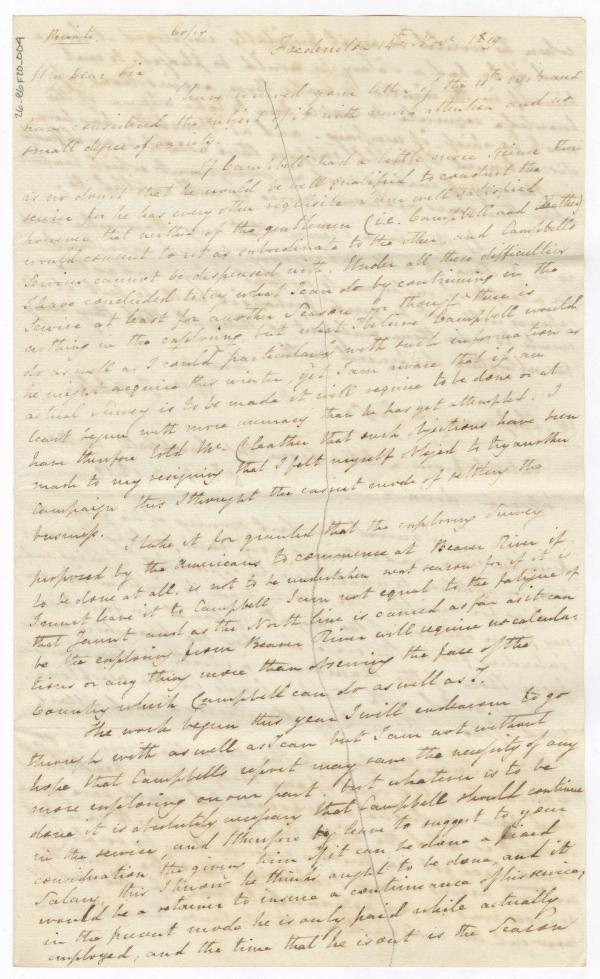 26-86F20-004
Private Copy
Fredericton 14th Novr 1819
My Dear Sir
I have received your letter of the 11th inst and
have considered the subject of it with much attention and no
small degree of anxiety.
If Campbell had a little more Science there
is no doubt that he would be well qualified to conduct the
service for he has every other requisite. I am well satisfied
however that neither of the gentlemen (i.e. Campbell and Cleather)
would consent to act as subordinate to the other, and Campbells
Services cannot be dispensed with. Under all these difficulties
I have concluded to try what I can do by continuing in the
Service at least for another Season, for though there is
nothing in the exploring but what I believe Campbell would
do as well as I could particularly with such information as
he might acquire this winter, yet I am aware that if an
actual Survey is to be made it will require to be done or at
least begun with more accuracy than he has yet attempted. I
have therefore told Mr. Cleather that such objections have been
made to my resigning that I felt myself obliged to try another
Campaign this I thought the easiest mode of settling the
business.
I take it for granted that the exploring Survey
proposed by the Americans to commence at Beaver River if
to be done at all, is not to be undertaken next season for if it is
I must leave it to Campbell I am not equal to the fatigue of
that Jaunt and as the North line is carried as far as it can
be the exploring from Beaver River will require no calcula-
tions or any thing more than observing the face of the
Country which Campbell can do as well as I.
The work begun this year I will endeavour to go
through with as well as I can but I am not without
hope that Campbells report may save the necessity of any
more exploring on our part. but whatever is to be
done it is absolutely necessary that Campbell should continue
in the service, and I therefore beg leave to suggest to your
consideration the giving him if it can be done a fixed
Salary, this I know he thinks ought to be done, and it
would be a retainer to insure a continuance of his service,
in the present mode he is only paid while actually
employed, and the time that he is out is the Season